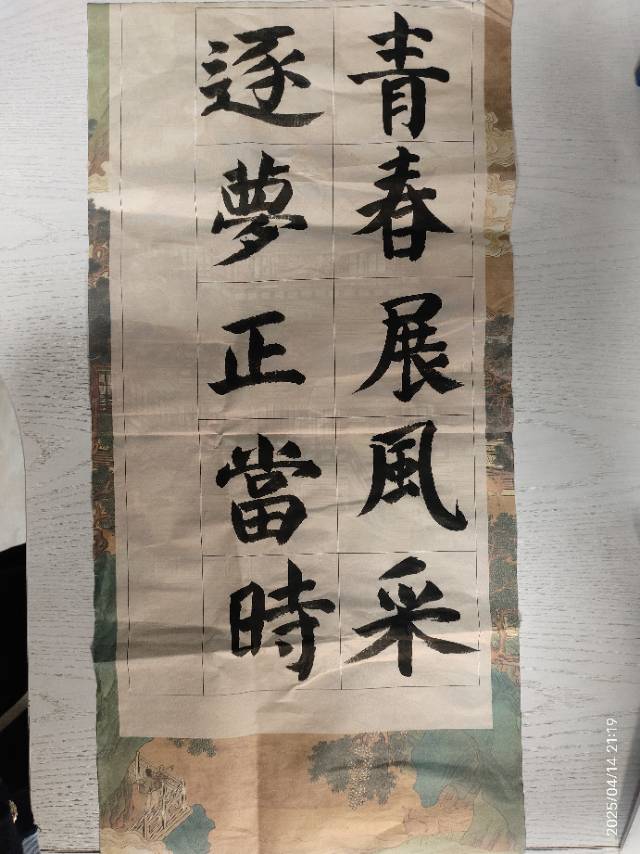 青春展風采
逐夢正當時
2025/04/14 21:19